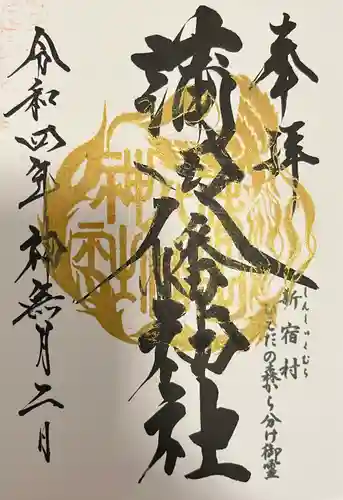 奉拝
しんしゅくむら
新宿村
ひただの森から分け御霊
蒲田八幡神社
令和四年神無月二日